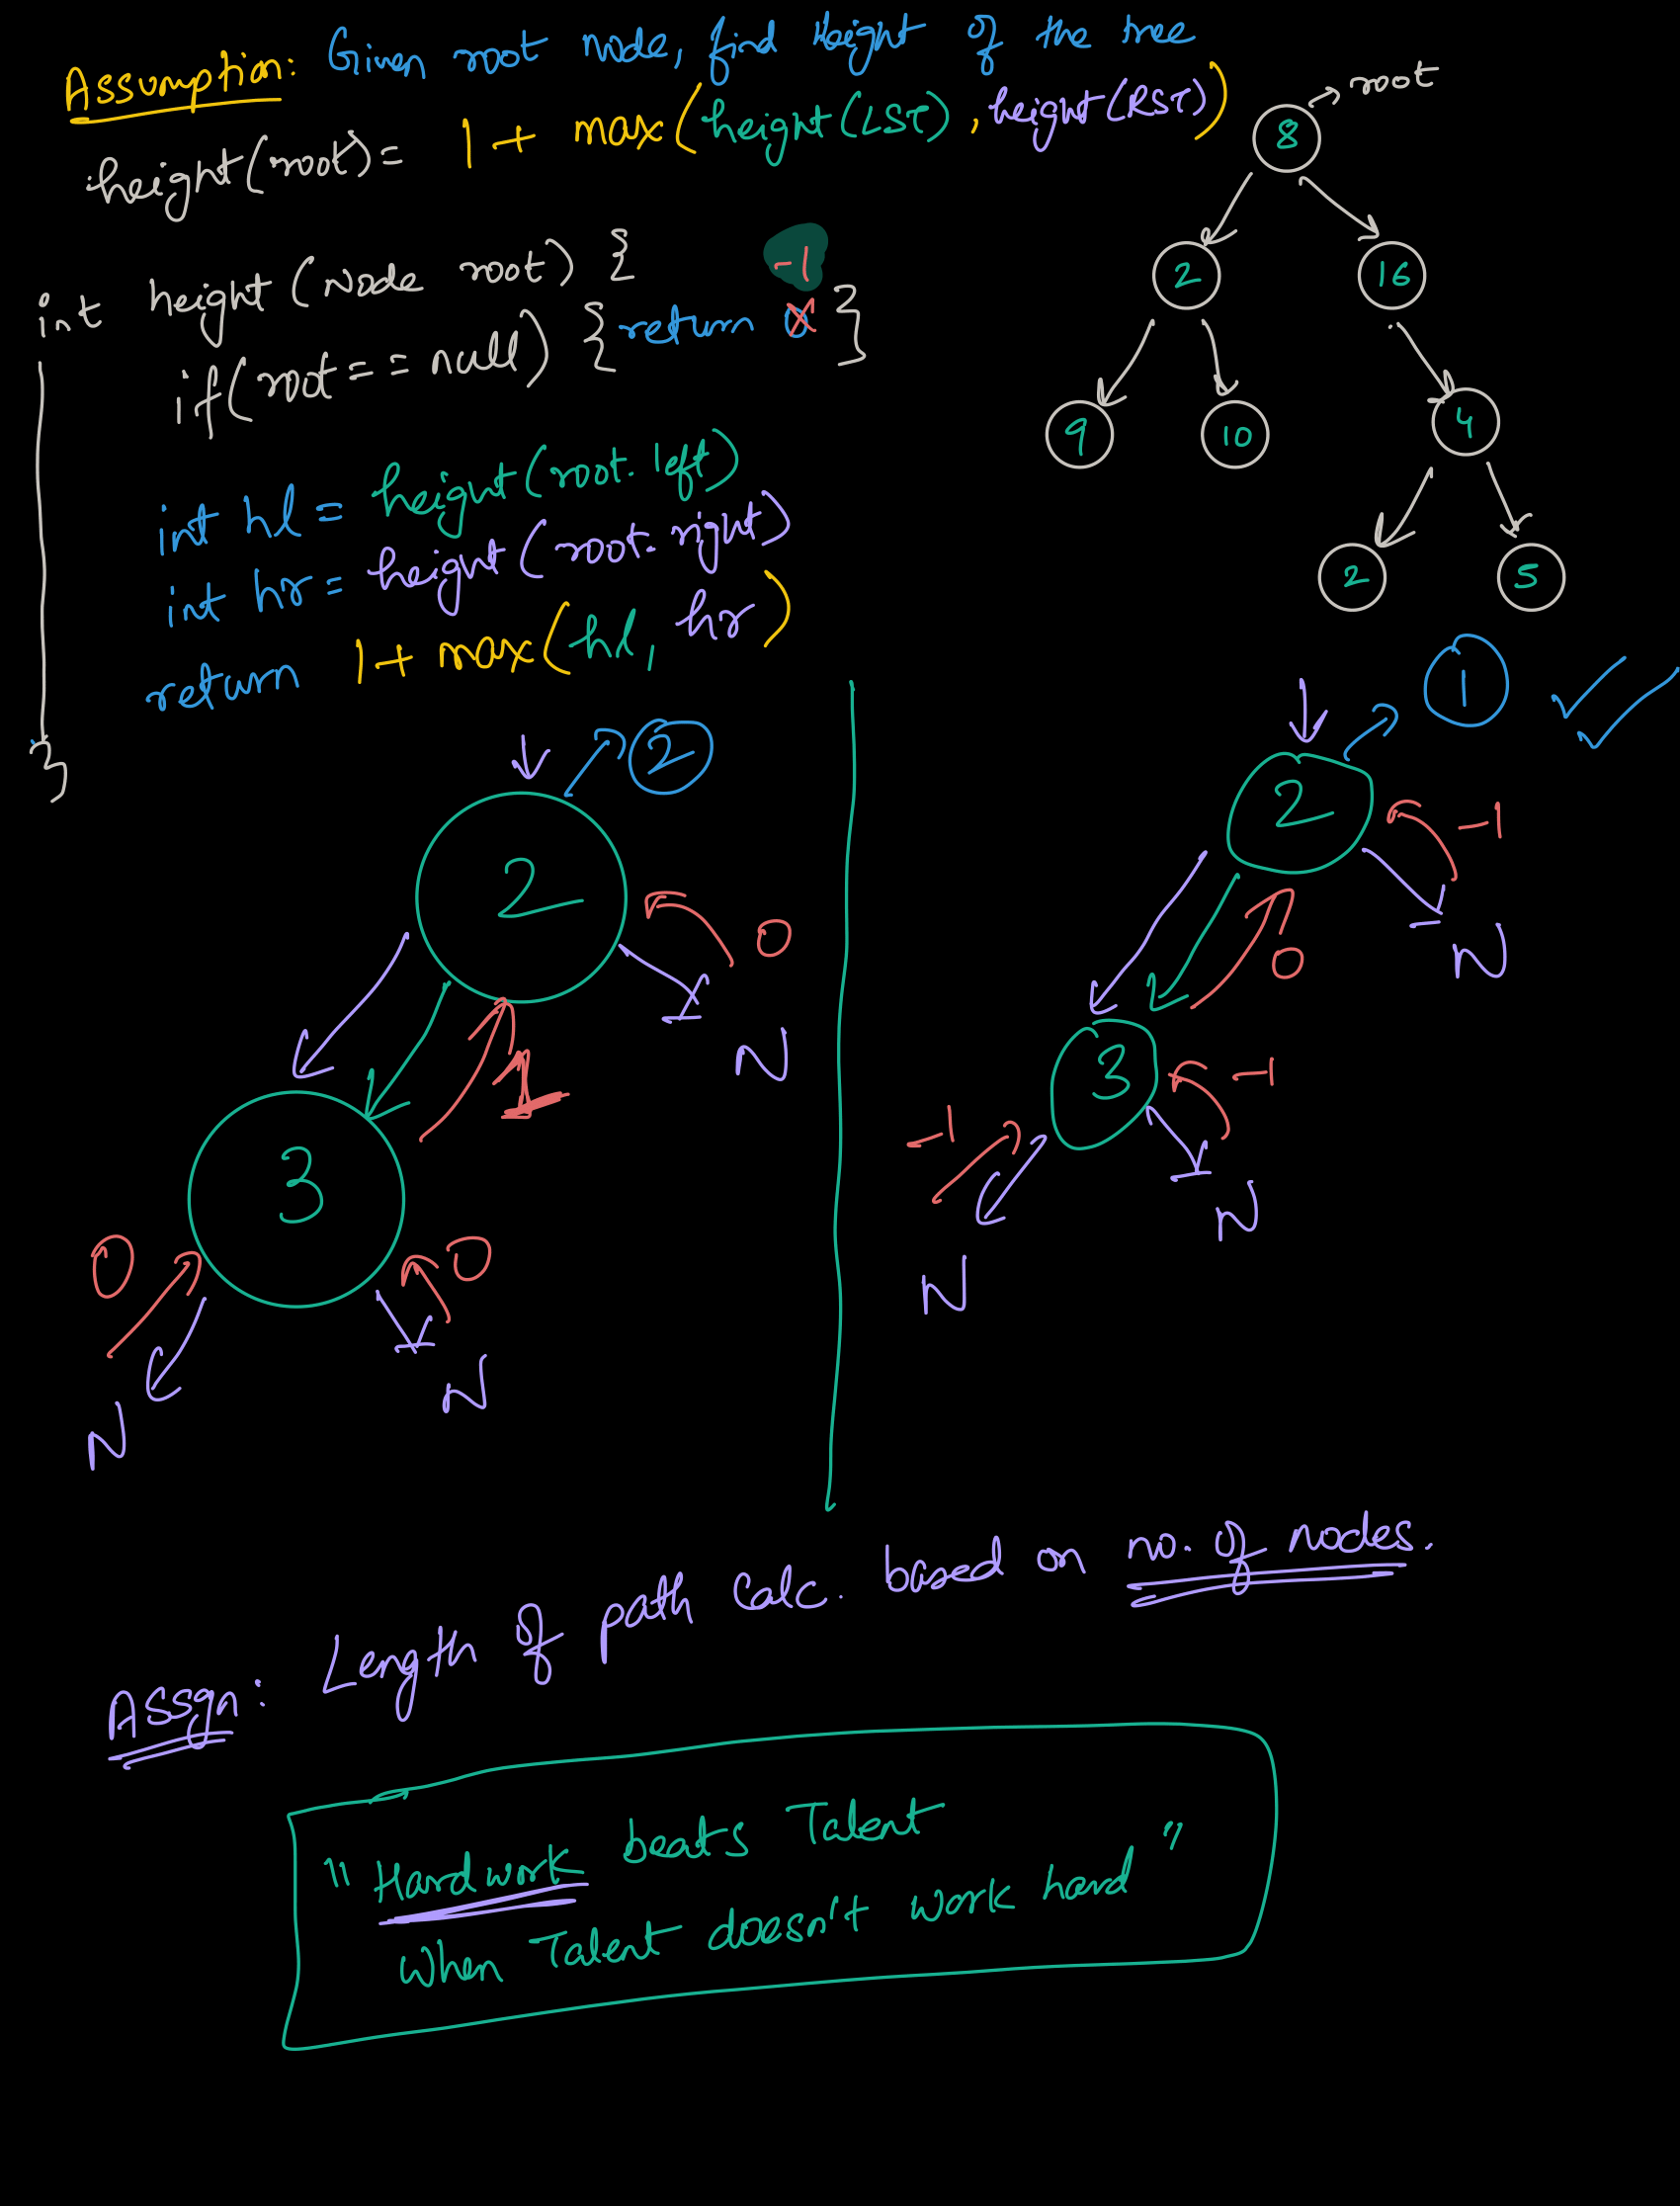 Assumption: Given root node, find Height of the tree
height(root)= 1 + max(height(LST), height(RST))
root
8
2 16
9 10 4
2 5
int height (Node root) {
-1
if(root == null) {return 0}
int hl = height(root.left)
int hr = height(root.right)
return 1+max(hl, hr)
}
2
2
0
N
1
3
0
0
N
N
1
2
-1
N
0
3
-1
-1
N
N
Assgn: Length of path Calc. based on no. of nodes.
"Hardwork beats Talent
When Talent doesn't work hard"